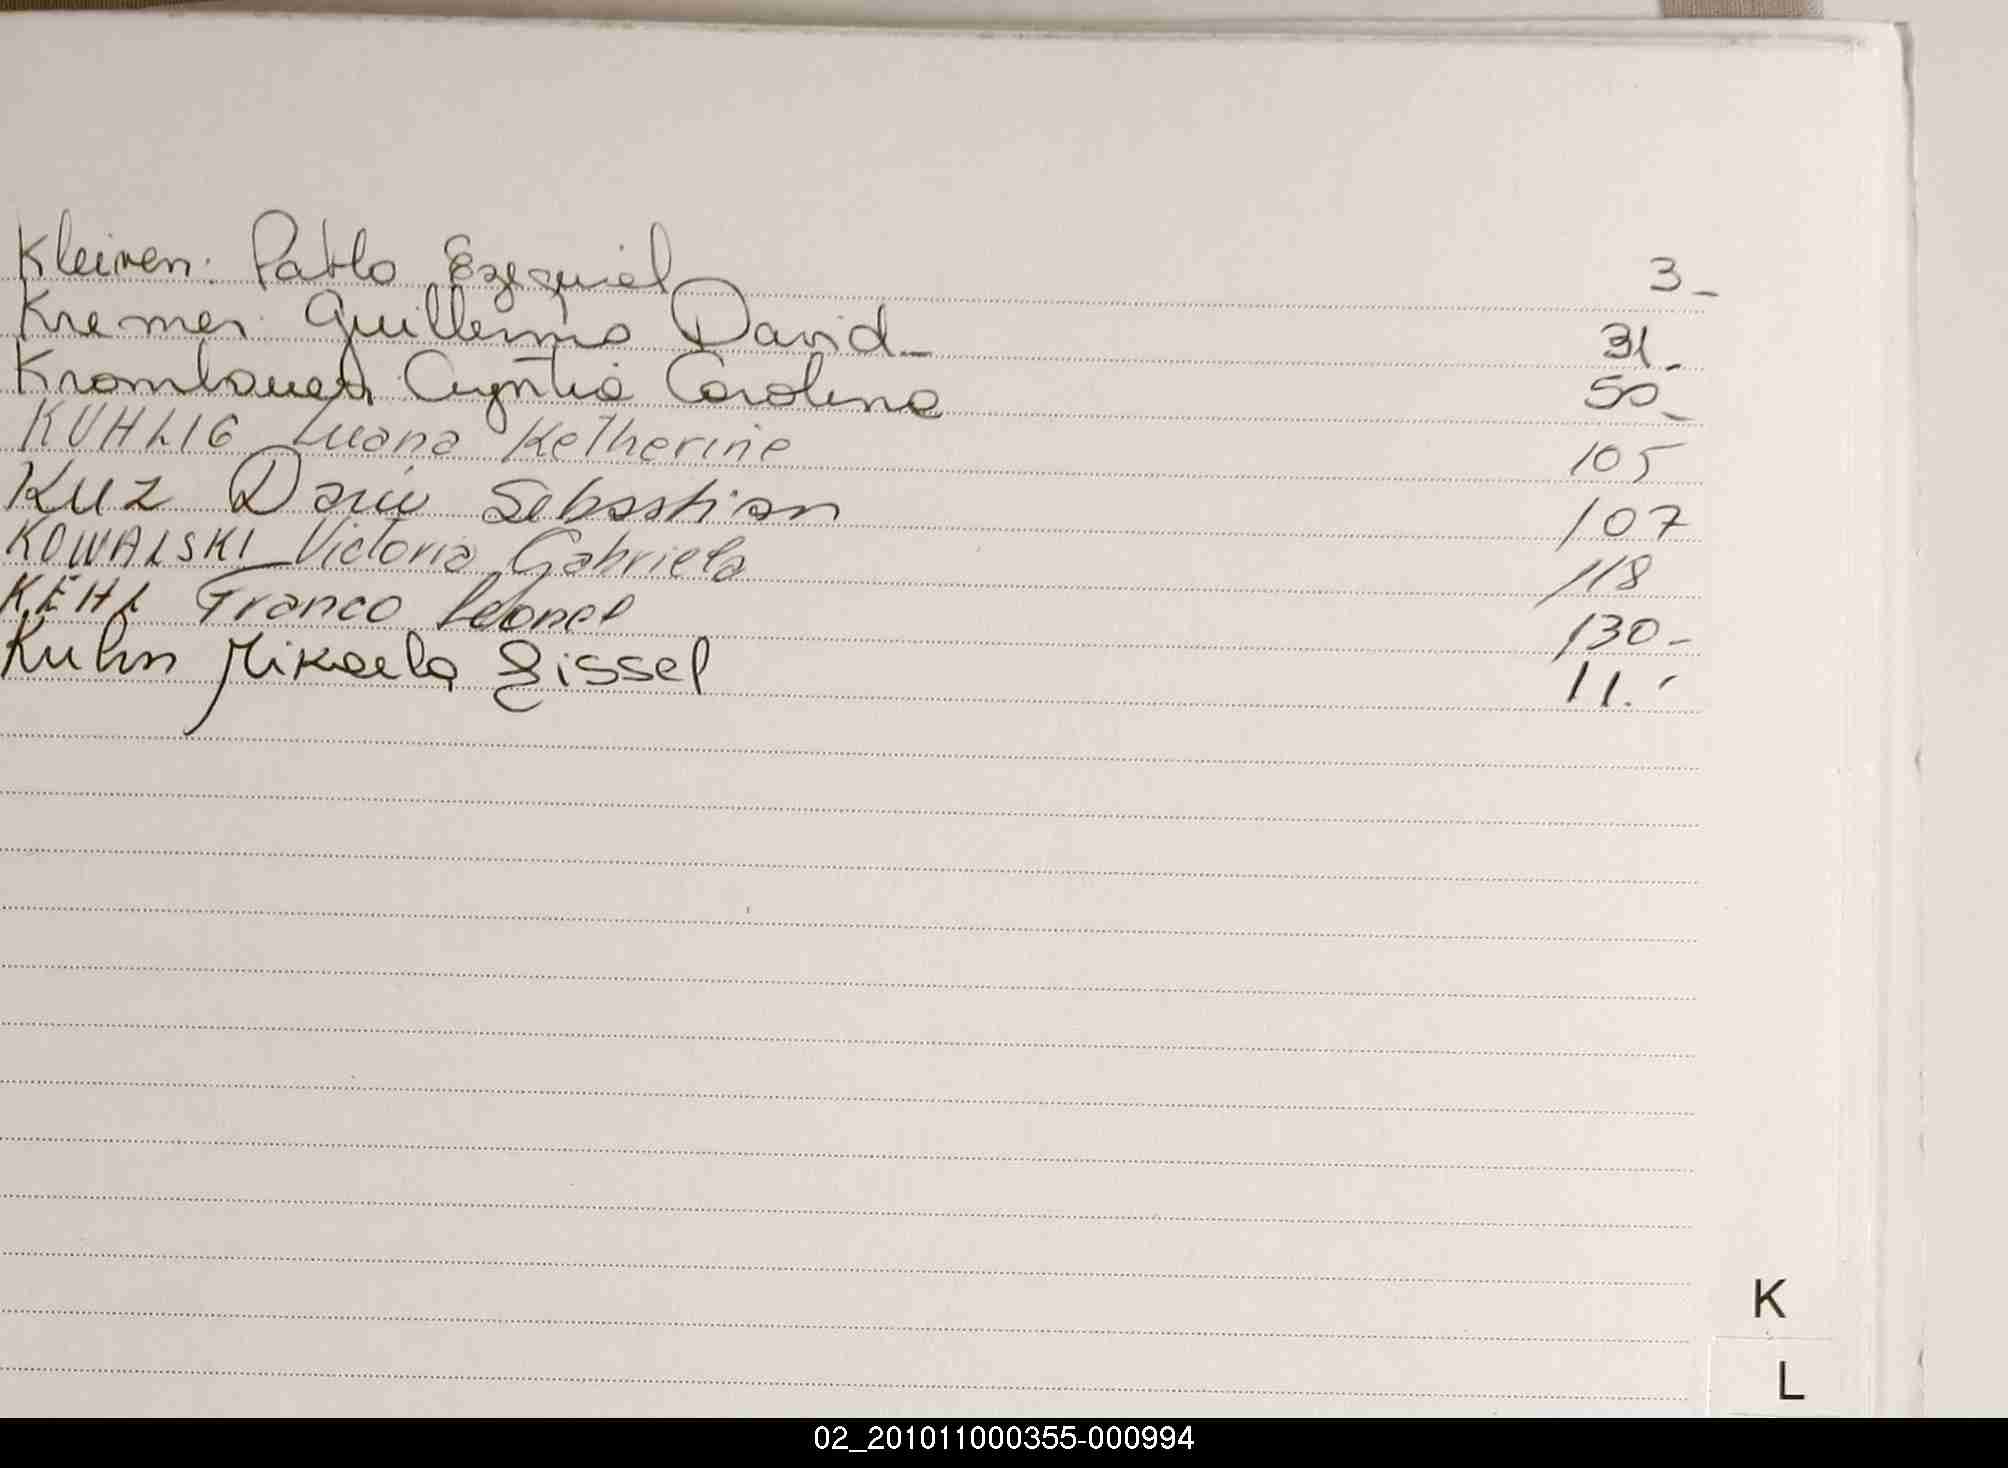 Kleiven. Pablo Ezequiel 3_
Kremer. Guillermo David_ 31_
Krombauer, Cyntia Carolina 50_
KUHLIG Luana Ketherine 105
KUZ Dario Sebastian 107
KOWALSKI Victoria Gabriela 118
KEHL Franco Leonel 130-
Kuhn Mikaela Gissel 11.-
K
L
02_201011000355-000994